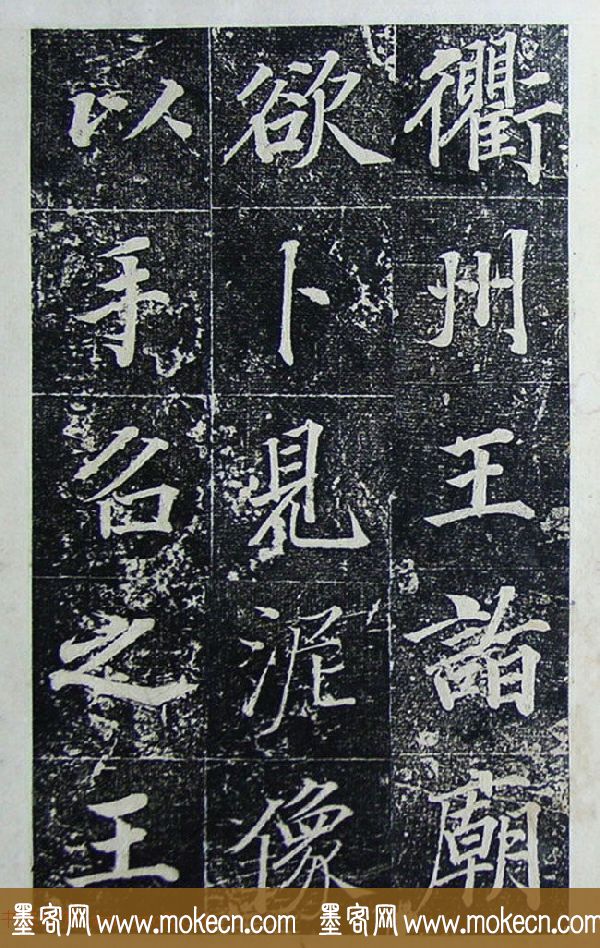 衢州王詣廟
欲卜見泥像
以手召之王
墨客网 www.mokecn.com 墨客网 www.mokecn.com